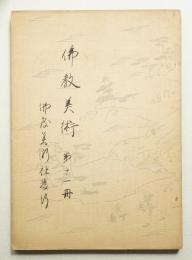 佛教美術
第十一冊
佛教美術社發行